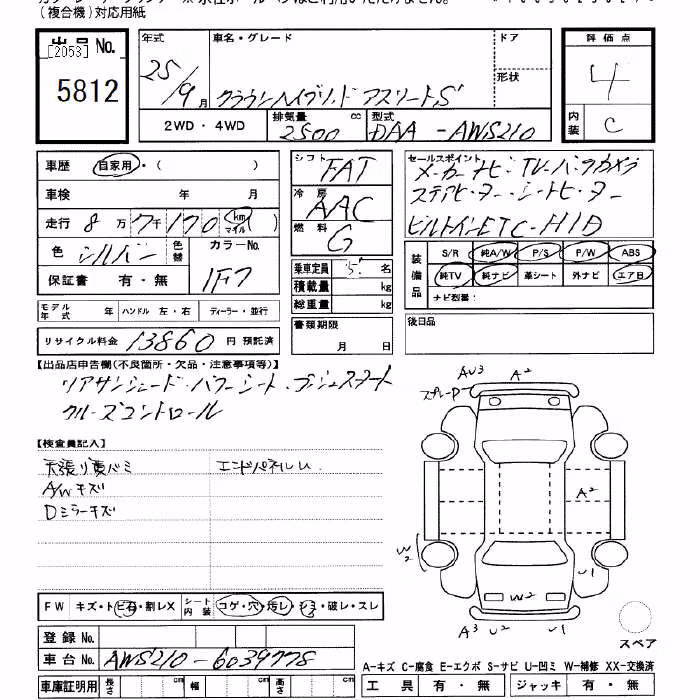 (複合機)対応用紙
出品No.
[2053]
5812
年式
25/9月
車名・グレード
クラウンハイブリッド アスリートS
ドア
形状
2WD・4WD
排気量 cc
2500
型式
DAA-AWS210
評価点
4
内装
C
車歴 自家用・( )
車検 年 月
走行 8万 7千 170 km マイル ( )
色 シルバー 色替 カラーNo.
保証書 有・無 1F7
モデル年式 年 ハンドル 左・右 ディーラー・並行
リサイクル料金 13860 円 預託済
シフト
FAT
冷房
AAC
燃料
G
乗車定員 5 名
積載量 kg
総重量 kg
書類期限
月 日
セールスポイント
メーカーナビ・TV・バックカメラ
ステアヒーター・シートヒーター
ビルトインETC・HID
装備品
S/R 純A/W P/S P/W ABS
純TV 純ナビ 革シート 外ナビ エアB
ナビ型番:
後日品
【出品店申告欄(不良箇所・欠品・注意事項等)】
リアサンシェード・パワーシート・プッシュスタート
クルーズコントロール
【検査員記入】
天張り黄バミ
エンドパネルU
A/Wキズ
Dミラーキズ
AU3
A2
スプレーP
A2
W2
U1
W2
A3 U2 U1
スペア
FW キズ・トビ石・割レX シート内装 コゲ・穴・汚レ・シミ・破レ・スレ
登録No.
車台No. AWS210-6039778
車庫証明用 長さ cm 幅 cm 高さ cm
A-キズ C-腐食 E-エクボ S-サビ U-凹ミ W-補修 XX-交換済
工具 有・無 ジャッキ 有・無